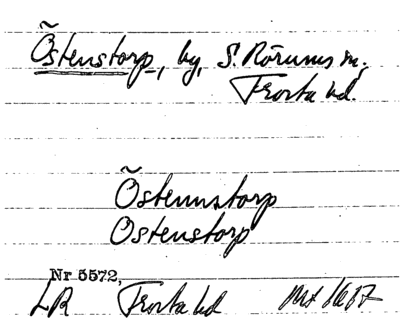 Östenstorp, by, S. Rörums sn,
Frosta hd.
Östennstorp
Ostenstorp
Nr 5572,
LR Frosta hd